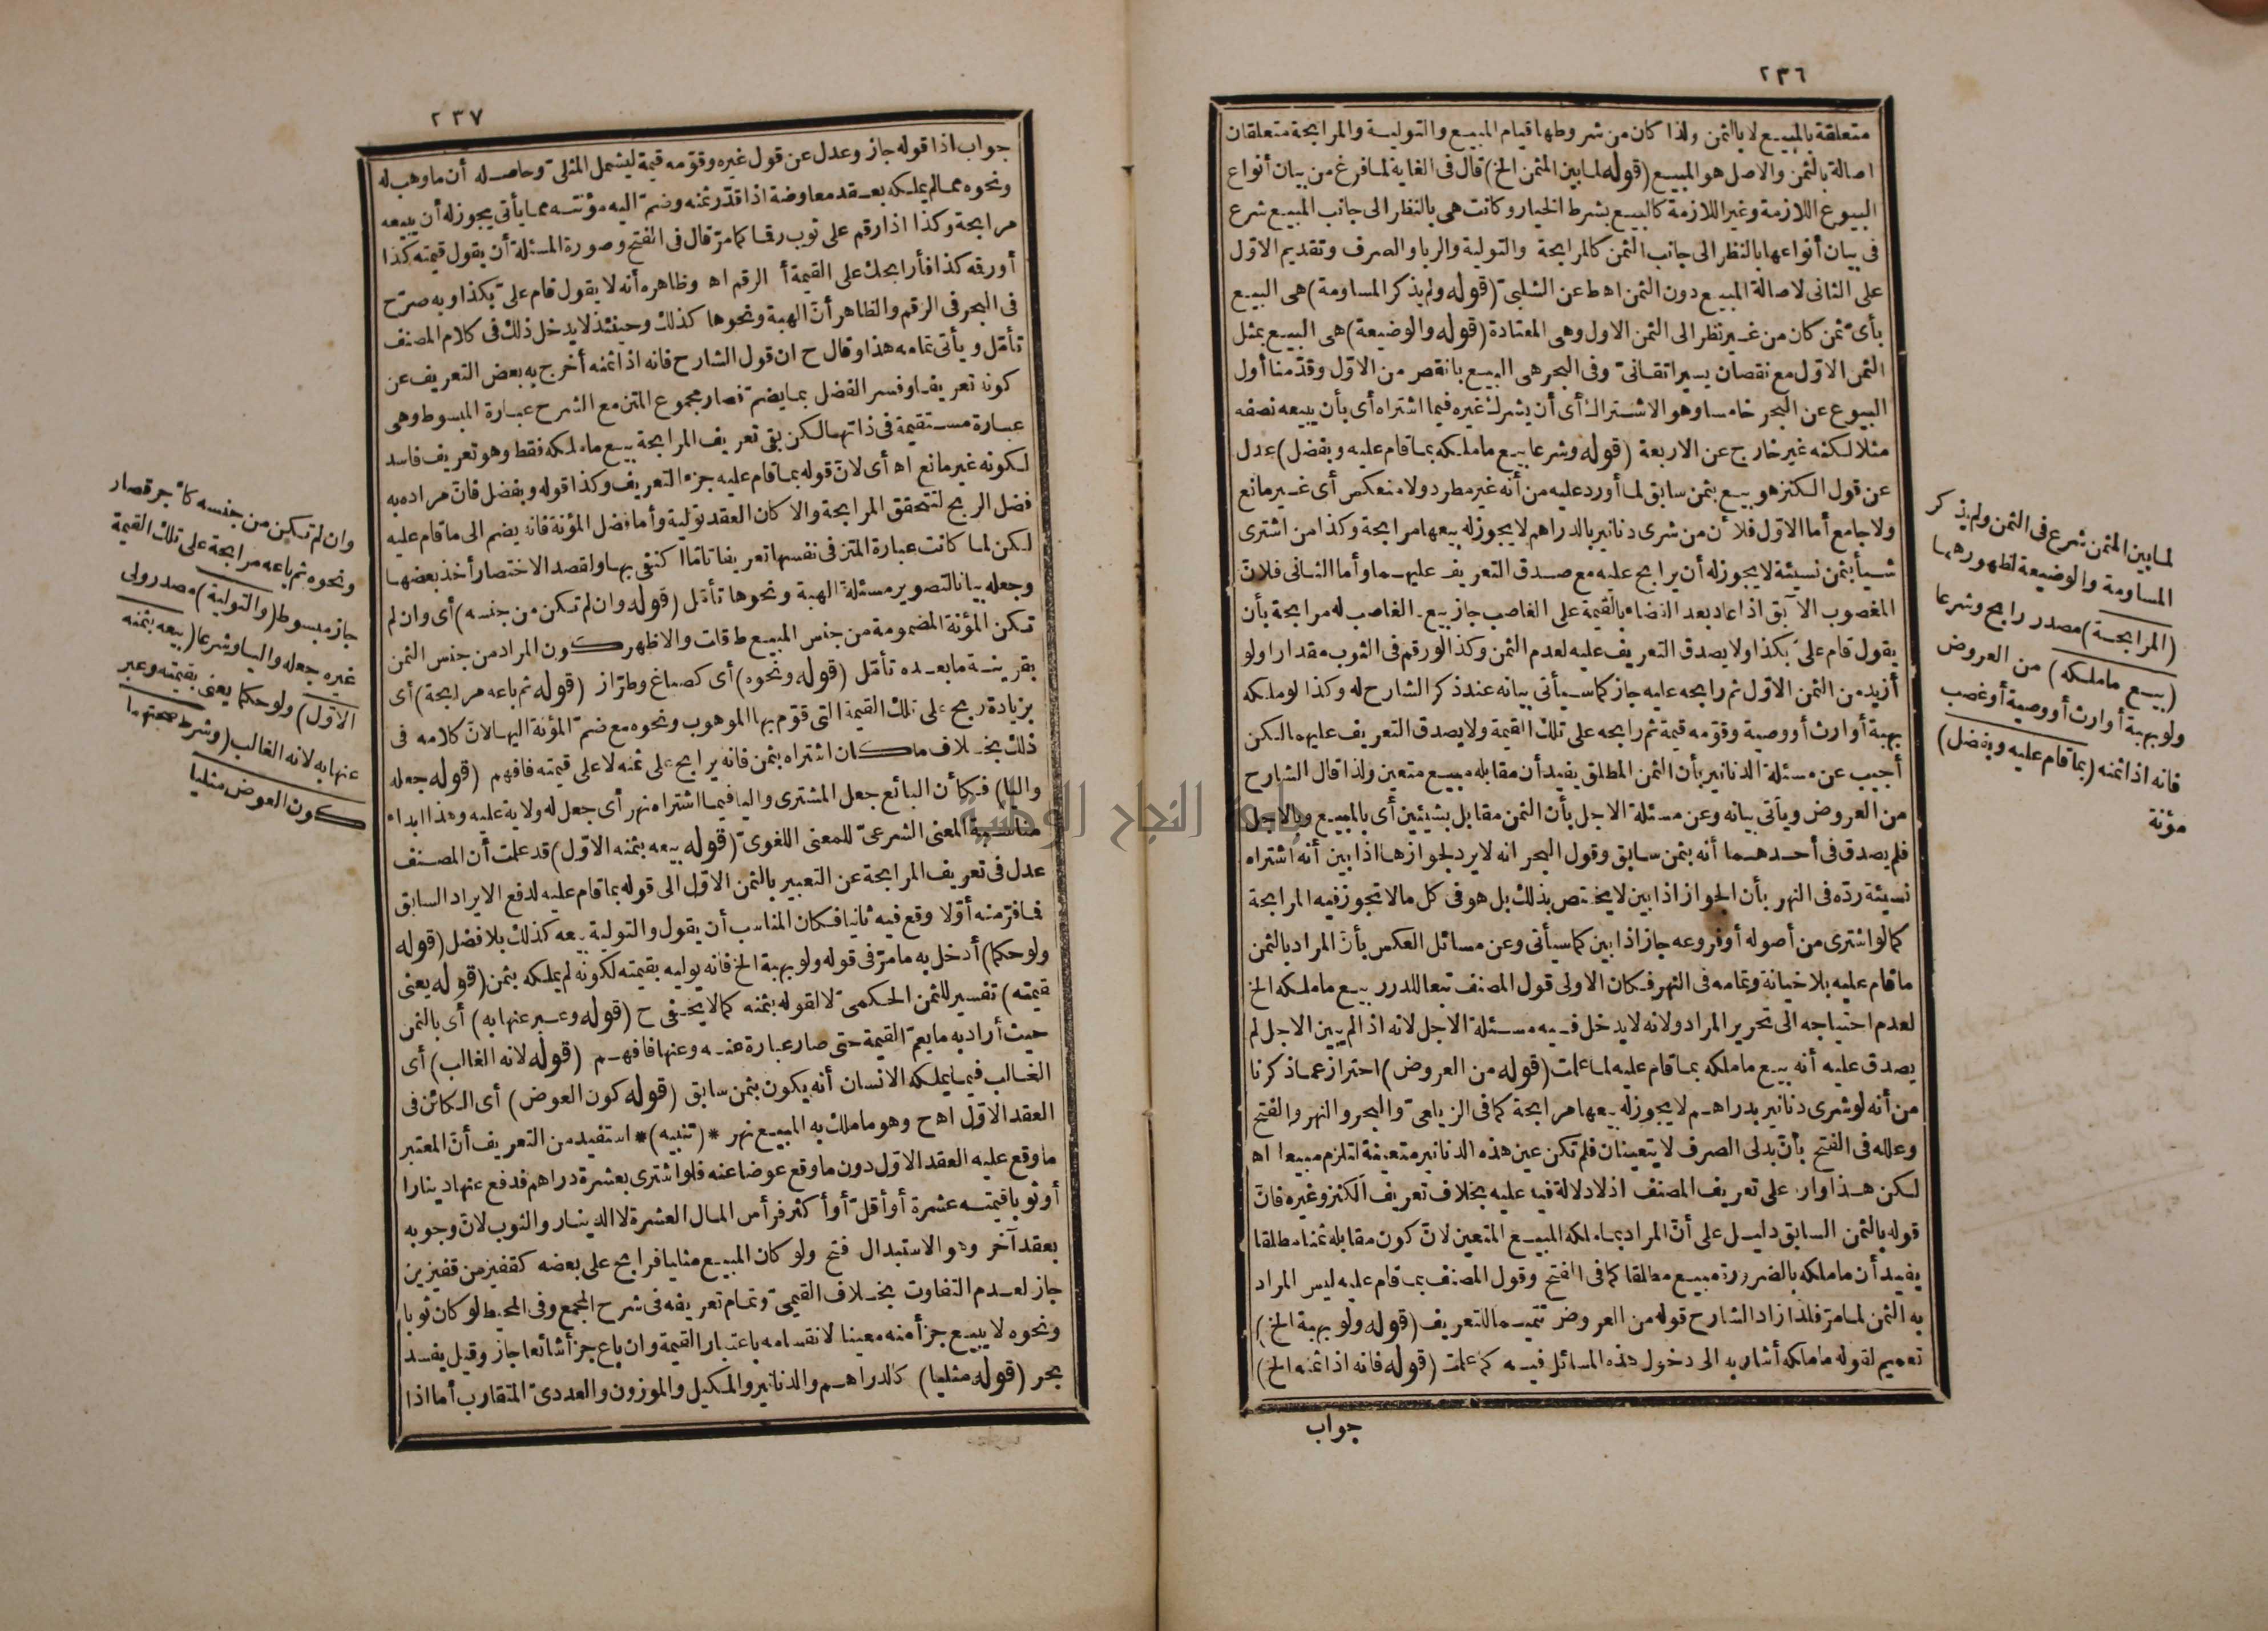 ٢٣٦
متعلقة بالمبيع لا بالثمن ولذا كان من شروطها قيام المبيع والتولية والمرابحة متعلقان
اصالة بالثمن والاصل هو المبيع (قوله لما بين المثمن الخ) قال فى الغاية لما فرغ من بيان أنواع
البيوع اللازمة وغير اللازمة كالبيع بشرط الخيار وكانت هى بالنظر الى جانب المبيع شرع
فى بيان أنواعها بالنظر الى جانب الثمن كالمرابحة والتولية والربا والصرف وتقديم الاوّل
على الثانى لاصالة المبيع دون الثمن اه ط عن الشلبىّ (قوله ولم يذكر المساومة) هى البيع
بأىّ ثمن كان من غير نظر الى الثمن الاول وهى المعتادة (قوله والوضيعة) هى البيع بمثل
الثمن الاوّل مع نقصان يسير اتقانىّ وفى البحر هى البيع بانقص من الاوّل وقدّمنا أول
البيوع عن البحر خامسا وهو الاشتراك أى أن يشرك غيره فيما اشتراه أى بأن يبيعه نصفه
مثلا لكنه غير خارج عن الاربعة (قوله وشرعا بيع ما ملكه بما قام عليه وبفضل) عدل
عن قول الكنز هو بيع بثمن سابق لما أورد عليه من أنه غير مطرد ولا منعكس أى غير مانع
ولا جامع أما الاوّل فلأن من شرى دنانير بالدراهم لا يجوز له بيعها مرابحة وكذا من اشترى
شيأ بثمن نسيئة لا يجوز له أن يرابح عليه مع صدق التعريف عليهما وأما الثانى فلانّ
المغصوب الآبق اذا عاد بعد القضاء بالقيمة على الغاصب جاز بيع الغاصب له مرابحة بأن
يقول قام علىّ بكذا ولا يصدق التعريف عليه لعدم الثمن وكذا لو رقم فى الثوب مقدارا ولو
أزيد من الثمن الاوّل ثم رابحه عليه جاز كما سيأتى بيانه عند ذكر الشارح له وكذا لو ملكه
بهبة أو ارث أو وصية وقوّمه قيمة ثم رابحه على تلك القيمة ولا يصدق التعريف عليهما لكن
أجيب عن مسئلة الدنانير بأن الثمن المطلق يفيد أن مقابله مبيع متعين ولذا قال الشارح
من العروض ويأتى بيانه وعن مسئلة الاجل بأن الثمن مقابل بشيئين أى بالمبيع وبالاجل
فلم يصدق فى أحدهما أنه بثمن سابق وقول البحر انه لا يرد لجوازها اذا بين أنه اشتراه
نسيئة ردّه فى النهر بأن الجواز اذا بين لا يختص بذلك بل هو فى كل ما لا تجوز فيه المرابحة
كما لو اشترى من أصوله أو فروعه جاز اذا بين كما سيأتى وعن مسائل العكس بأنّ المراد بالثمن
ما قام عليه بلا خيانة وتمامه فى النهر فكان الاولى قول المصنف تبعا للدرر بيع ما ملكه الخ
لعدم احتياجه الى تحرير المراد ولانه لا يدخل فيه مسئلة الاجل لانه اذا لم يبين الاجل لم
يصدق عليه أنه بيع ما ملكه بما قام عليه لما علمت (قوله من العروض) احترازعما ذكرنا
من أنه لو شرى دنانير بدراهم لا يجوز له بيعها مرابحة كما فى الزيلعىّ والبحر والنهر والفتح
وعلله فى الفتح بأنّ بدلى الصرف لا يتعينان فلم تكن عين هذه الدنانير متعينة لتلزم مبيعا اه
لكن هذا وارد على تعريف المصنف اذ لا دلالة فيه عليه بخلاف تعريف الكنز وغيره فانّ
قوله بالثمن السابق دليل على أنّ المراد بما ملكه المبيع المتعين لانّ كون مقابله ثمنا مطلقا
يفيد أن ما ملكه بالضرورة مبيع مطلقا كما فى الفتح وقول المصنف بما قام عليه ليس المراد
به الثمن لما مرّ فلذا زاد الشارح قوله من العروض تتميما للتعريف (قوله ولو بهبة الخ)
تعميم لقوله ما ملكه أشار به الى دخول هذه المسائل فيه كما علمت (قوله فانه اذا ثمنه الخ)
جواب
لما بين المثمن شرع فى الثمن ولم يذكر
المساومة والوضيعة لظهورهما
(المرابحة) مصدر رابح وشرعا
(بيع ما ملكه) من العروض
ولو بهبة أو ارث أو وصية أو غصب
فانه اذا ثمنه (بما قام عليه وبفضل)
مؤنة
٢٣٧
جواب اذا قوله جاز وعدل عن قول غيره وقوّمه قيمة ليشمل المثلىّ وحاصله أن ما وهب له
ونحوه مما لم يملكه بعقد معاوضة اذا قدّر ثمنه وضمّ اليه مؤنته مما يأتى يجوز له أن يبيعه
مرابحة وكذا اذا رقم على ثوب رقما كما مرّ قال فى الفتح وصورة المسئلة أن يقول قيمته كذا
أو رقمه كذا فأرابحك على القيمة أ الرقم اه وظاهره أنه لا يقول قام علىّ بكذا وبه صرّح
فى البحر فى الرقم والظاهر أنّ الهبة ونحوها كذلك وحينئذ لا يدخل ذلك فى كلام المصنف
تأمّل ويأتى تمامه هذا وقال ح ان قول الشارح فانه اذا ثمنه أخرج به بعض التعريف عن
كونه تعريفا وفسر الفضل بما يضمّ فصار مجموع المتن مع الشرح عبارة المبسوط وهى
عبارة مستقيمة فى ذاتها لكن بقى تعريف المرابحة بيع ما ملكه فقط وهو تعريف فاسد
لكونه غير مانع اه أى لانّ قوله بما قام عليه جزء التعريف وكذا قوله وبفضل فانّ مراده به
فضل الربح لتتحقق المرابحة والا كان العقد تولية وأما فضل المؤنة فانه يضم الى ما قام عليه
لكن لما كانت عبارة المتن فى نفسها تعريفا تامّا اكتفى بها ولقصد الاختصار أخذ بعضها
وجعله بيانا لتصوير مسئلة الهبة ونحوها تأمّل (قوله وان لم تكن من جنسه) أى وان لم
تكن المؤنة المضمومة من جنس المبيع ط قات والاظهر كون المراد من جنس الثمن
بقرينة ما بعده تأمّل (قوله ونحوه) أى كصباغ وطرّاز (قوله ثم باعه مرابحة) أى
بزيادة ربح على تلك القيمة التى قوّم بها الموهوب ونحوه مع ضمّ المؤنة اليها لانّ كلامه فى
ذلك بخلاف ما كان اشتراه بثمن فانه يرابح على ثمنه لا على قيمته فافهم (قوله جعله
واليا) فكأن البائع جعل المشترى واليا فيما اشتراه نهر أى جعل له ولاية عليه وهذا ابداء
مناسبة المعنى الشرعىّ للمعنى اللغوىّ (قوله بيعه بثمنه الاوّل) قد علمت أن المصنف
عدل فى تعريف المرابحة عن التعبير بالثمن الاوّل الى قوله بما قام عليه لدفع الايراد السابق
فما فرّ منه أوّلا وقع فيه ثانيا فكان المناسب أن يقول والتولية بيعه كذلك بلا فضل (قوله
ولو حكما) أدخل به ما مرّ فى قوله ولو بهبة الخ فانه يوليه بقيمته لكونه لم يملكه بثمن (قوله يعنى
قيمته) تفسير للثمن الحكمىّ لا لقوله بثمنه كما لا يخفى ح (قوله وعبر عنها به) أى بالثمن
حيث أراد به ما يعمّ القيمة حتى صار عبارة عنه وعنها فافهم (قوله لانه الغالب) أى
الغالب فيما يملكه الانسان أنه يكون بثمن سابق (قوله كون العوض) أى الكائن فى
العقد الاوّل اه ح وهو ما ملك به المبيع نهر *(تنبيه)* استفيد من التعريف أنّ المعتبر
ما وقع عليه العقد الاوّل دون ما وقع عوضا عنه فلو اشترى بعشرة دراهم فدفع عنها دينارا
أو ثوبا قيمته عشرة أو أقلّ أو أكثر فرأس المال العشرة لا الدينار والثوب لانّ وجوبه
بعقد آخر وهو الاستبدال فتح ولو كان المبيع مثليا فرابح على بعضه كقفيز من قفيزين
جاز لعدم التفاوت بخلاف القيمىّ وتمام تعريفه فى شرح المجمع وفى المحيط لو كان ثوبا
ونحوه لا يبيع جزأ منه معينا لانقسامه باعتبار القيمة وان باع جزأ شائعا جاز وقيل يفسد
بحر (قوله مثليا) كالدراهم والدنانير والمكيل والموزون والعددىّ المتقارب أما اذا
وان لم تكن من جنسه كأجر قصار
ونحوه ثم باعه مرابحة على تلك القيمة
جاز مبسوط (والتولية) مصدر ولى
غيره جعله واليا وشرعا (بيعه بثمنه
الاوّل) ولو حكما يعنى بقيمته وعبر
عنها به لانه الغالب (وشرط صحتهما
كون العوض مثليا